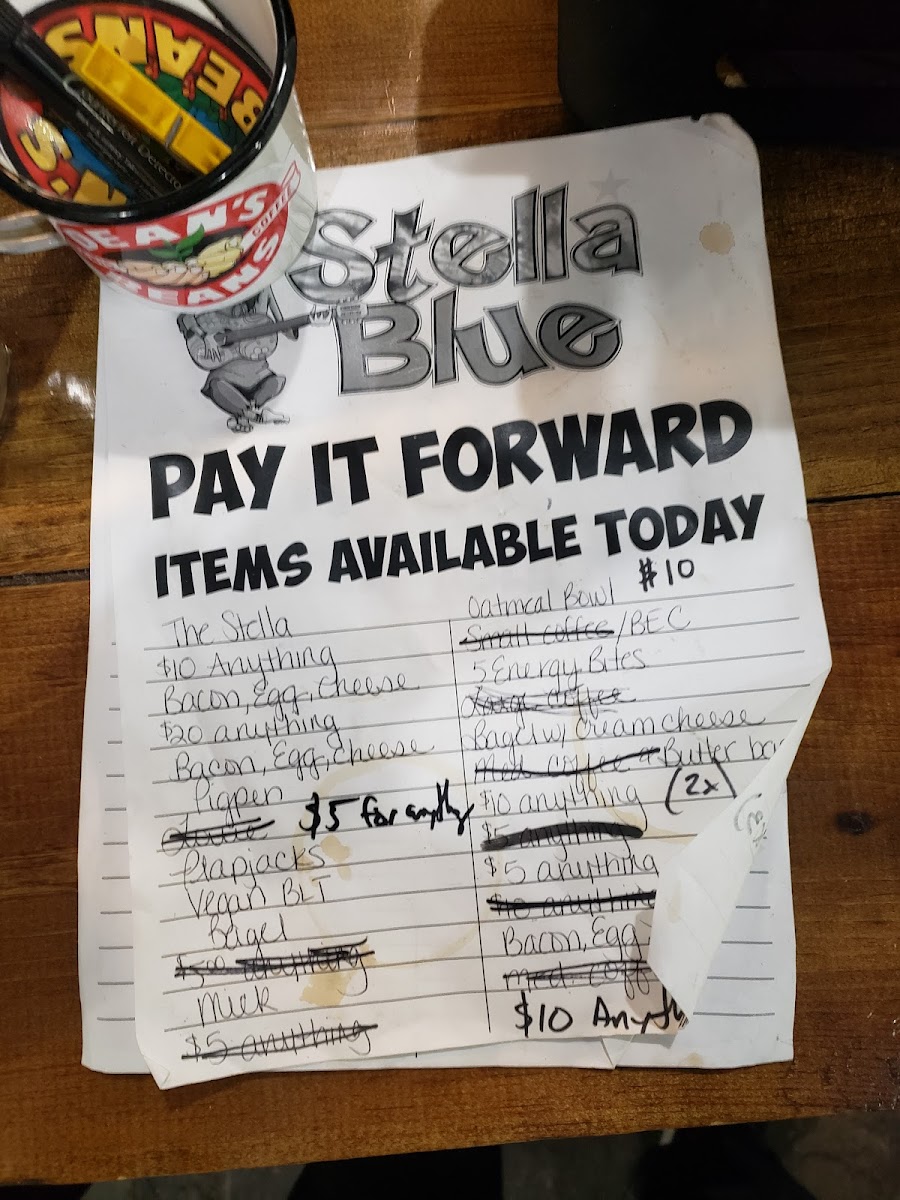 BEANS
Counterfeit Detector
DEAN'S
COFFEE
BEANS
Stella
Blue
PAY IT FORWARD
ITEMS AVAILABLE TODAY
The Stella
$10 Anything
Bacon, Egg, Cheese
$20 anything
Bacon, Egg, Cheese
Pigpen
$5 for anything
Flapjacks
Vegan BLT
Bagel
$5.00 anything
Muek
$5 anything
$10
Oatmeal Bowl
Small coffee/BEC
5 Energy Bites
Large coffee
Bagel w/ Creamcheese
Med. coffee Butter bar
$10 anything (2x)
$5 anything
$5 anything
$10 anything
Bacon, Egg
med. coff
$10 Anyth